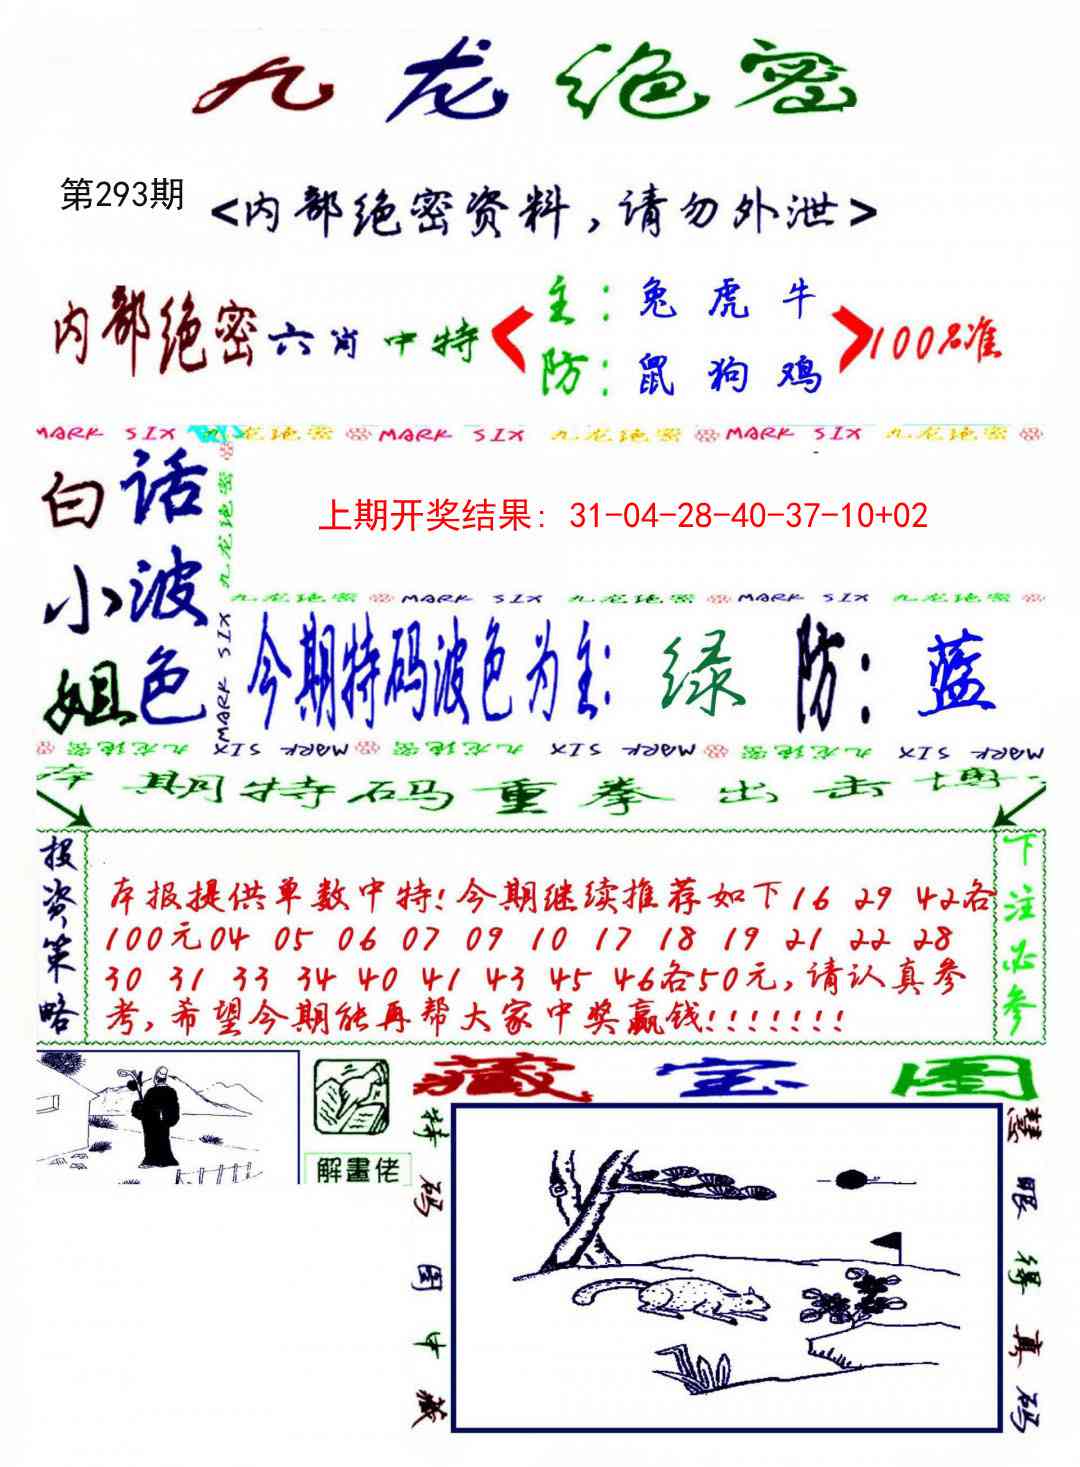 九龙绝密
第293期
<内部绝密资料,请勿外泄>
内部绝密六肖中特
主:兔虎牛
防:鼠狗鸡
100%准
MARK SIX 九龙绝密 MARK SIX 九龙绝密 MARK SIX 九龙绝密
白话
小波
姐色
九龙绝密
MARK SIX
上期开奖结果: 31-04-28-40-37-10+02
九龙绝密 MARK SIX 九龙绝密 MARK SIX 九龙绝密
今期特码波色为主:绿 防:蓝
九龙绝密 MARK SIX 九龙绝密 MARK SIX 九龙绝密 MARK SIX
本期特码重拳出击博
投资策略
本报提供单数中特!今期继续推荐如下16 29 42各
100元04 05 06 07 09 10 17 18 19 21 22 28
30 31 33 34 40 41 43 45 46各50元,请认真参
考,希望今期能再帮大家中奖赢钱!!!!!!!
下注必参
解畫佬
藏宝图
特码图中藏
慧眼得真码